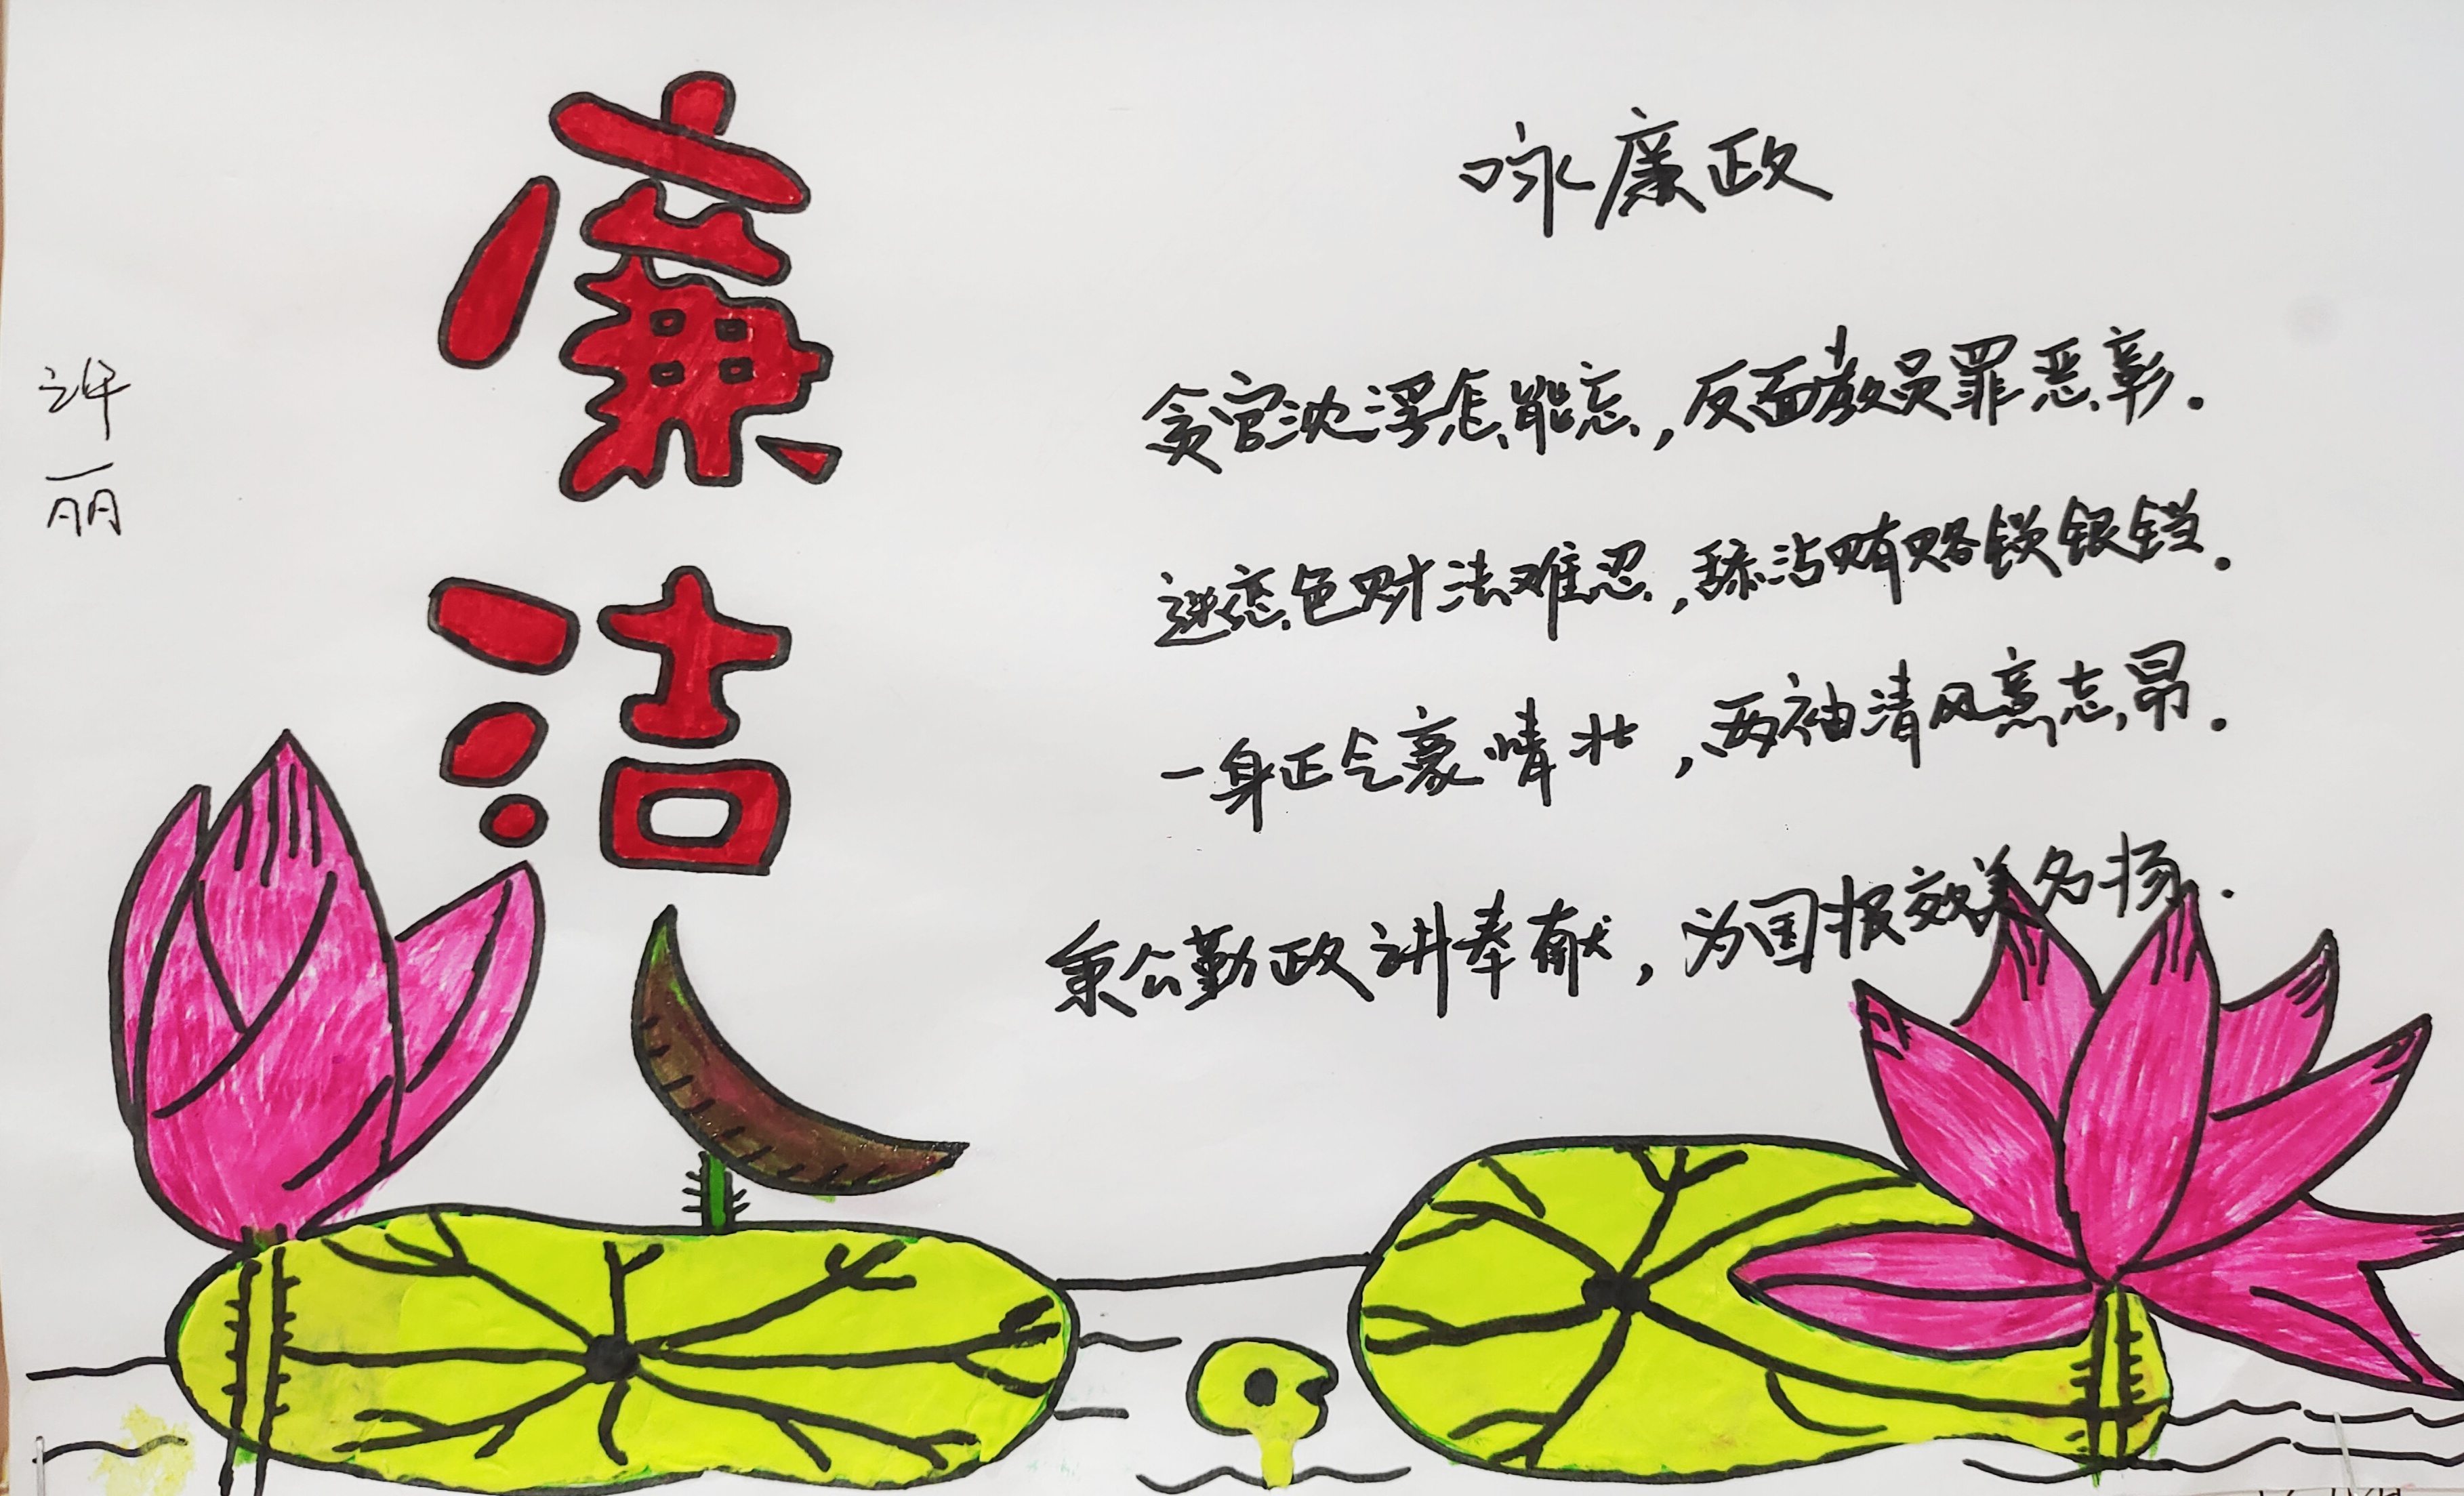 廉洁
许丽
咏廉政
贪官沈浮怎能忘，反面教员罪恶彰．
迷恋色财法难忍，舔沾贿赂锁银铛．
一身正气豪情壮，两袖清风意志昂．
秉公勤政讲奉献，为国报效美名扬．